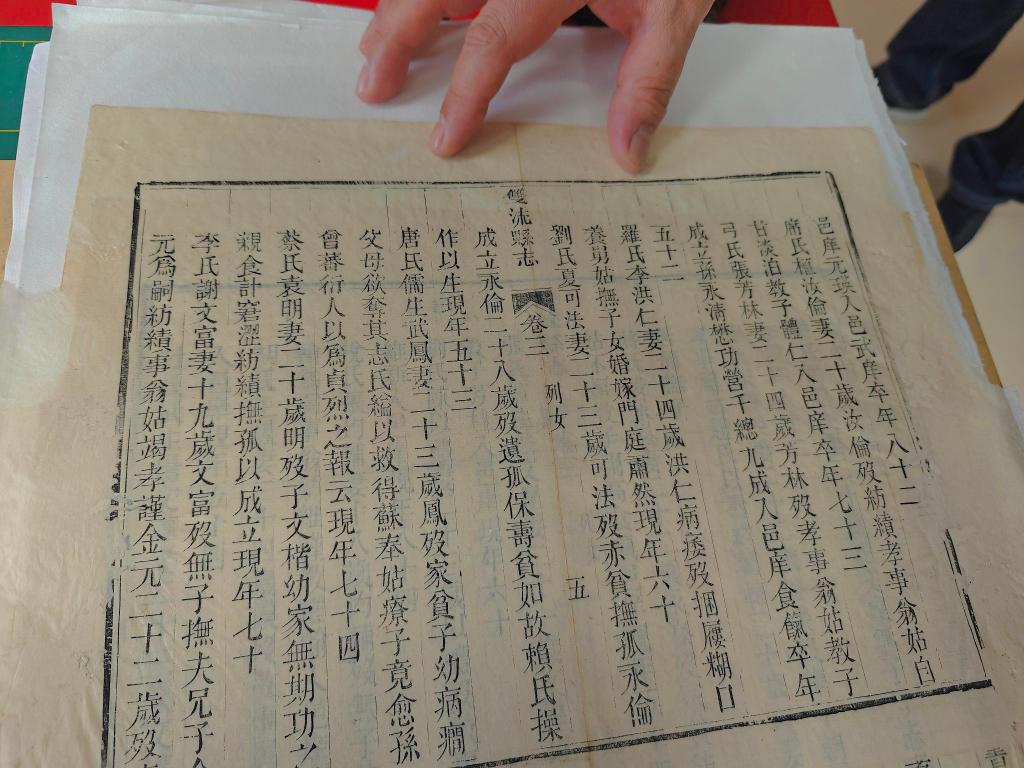 邑庠元瑛入邑武庠卒年八十二
席氏植汝倫妻二十歲汝倫歿紡績孝事翁姑自
甘淡泊教子體仁入邑庠卒年七十三
弓氏張芳林妻二十四歲芳林歿孝事翁姑教子
成立孫永清懋功營千總九成入邑庠食餼卒年
五十二
羅氏李洪仁妻二十四歲洪仁病痿歿捆屨糊口
養舅姑撫子女婚嫁門庭肅然現年六十
劉氏夏可法妻二十三歲可法歿亦貧撫孤永倫
雙流縣志
卷三
列女
五
成立永倫二十八歲歿遺孤保壽貧如故賴氏操
作以生現年五十三
唐氏儒生武鳳妻二十三歲鳳歿家貧子幼病癇
父母欲奪其志氏縊以救得蘇奉姑療子竟愈孫
曾蕃衍人以為貞烈之報云現年七十四
蔡氏袁明妻二十歲明歿子文楷幼家無期功之
親食計窘澀紡績撫孤以成立現年七十
李氏謝文富妻十九歲文富歿無子撫夫兄子金
元為嗣紡績事翁姑竭孝謹金元二十二歲歿